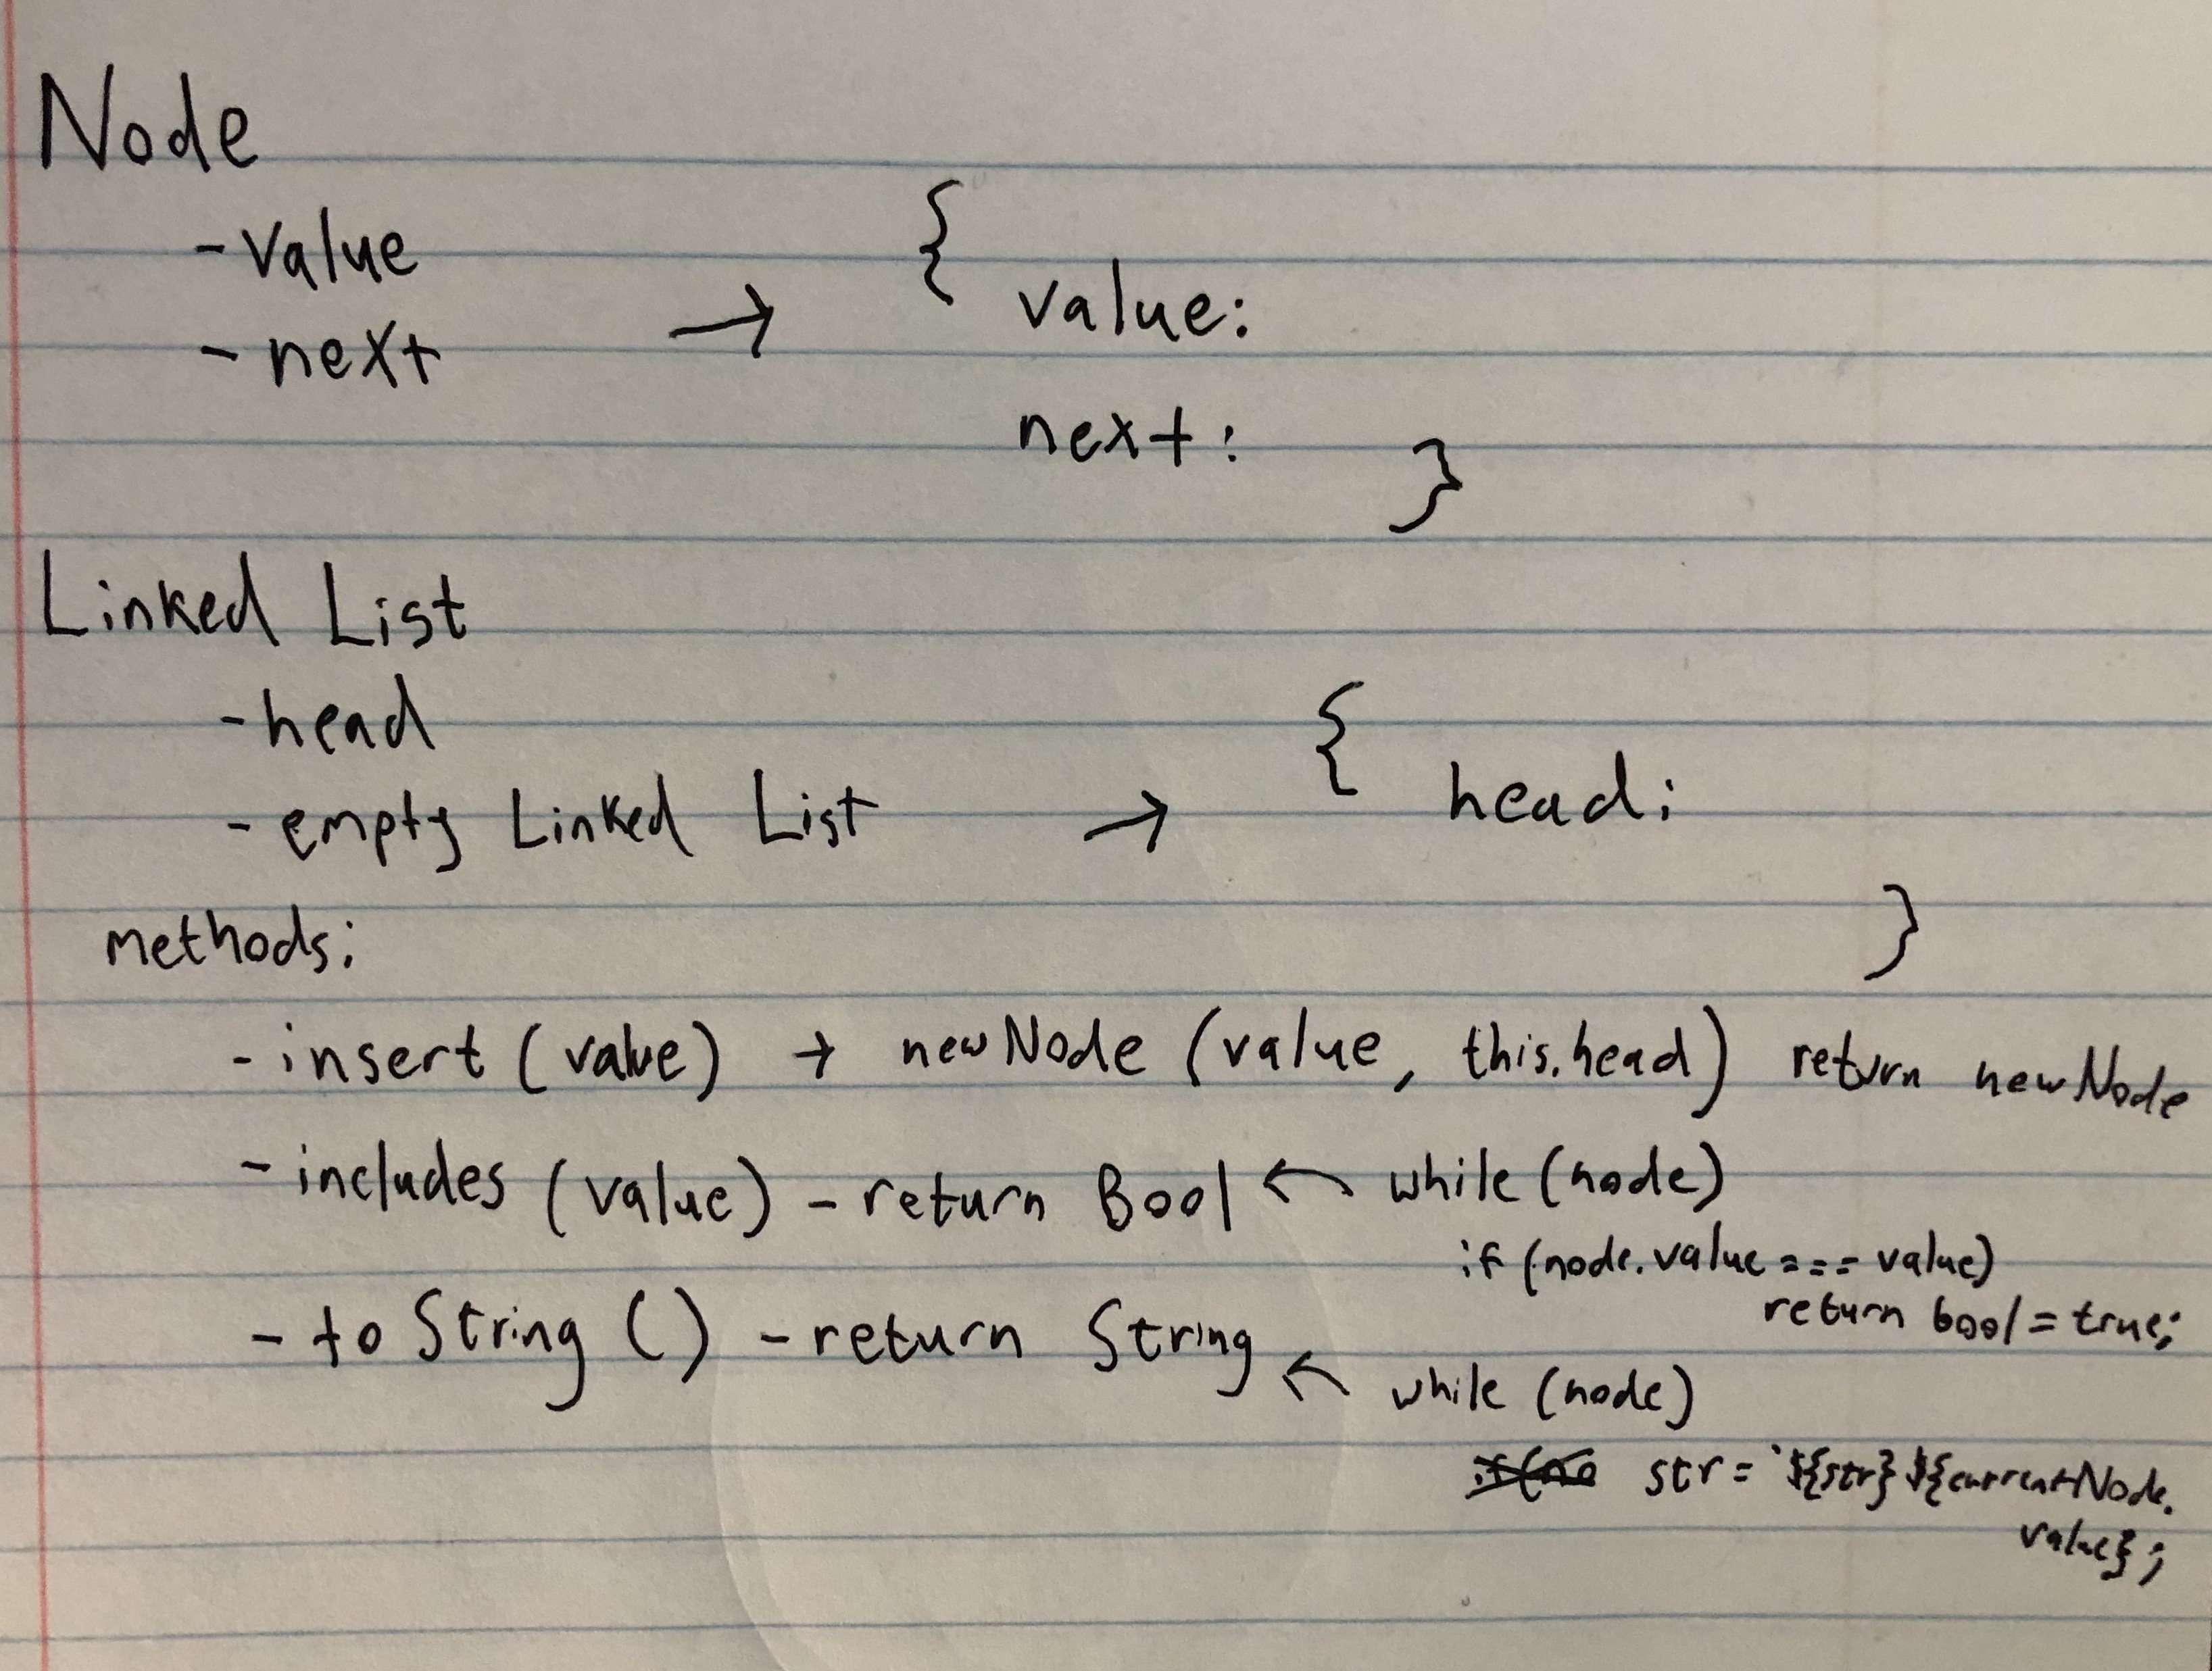 Node
- Value
- next → {
value:
next: }
Linked List
- head
- empty Linked List → { head:
}
methods:
- insert (value) → newNode (value, this.head) return newNode
- includes (value) - return Bool ← while (node)
if (node.value === value)
return bool = true;
- to String () - return String ← while (node)
str = `${str} ${currentNode.
value};